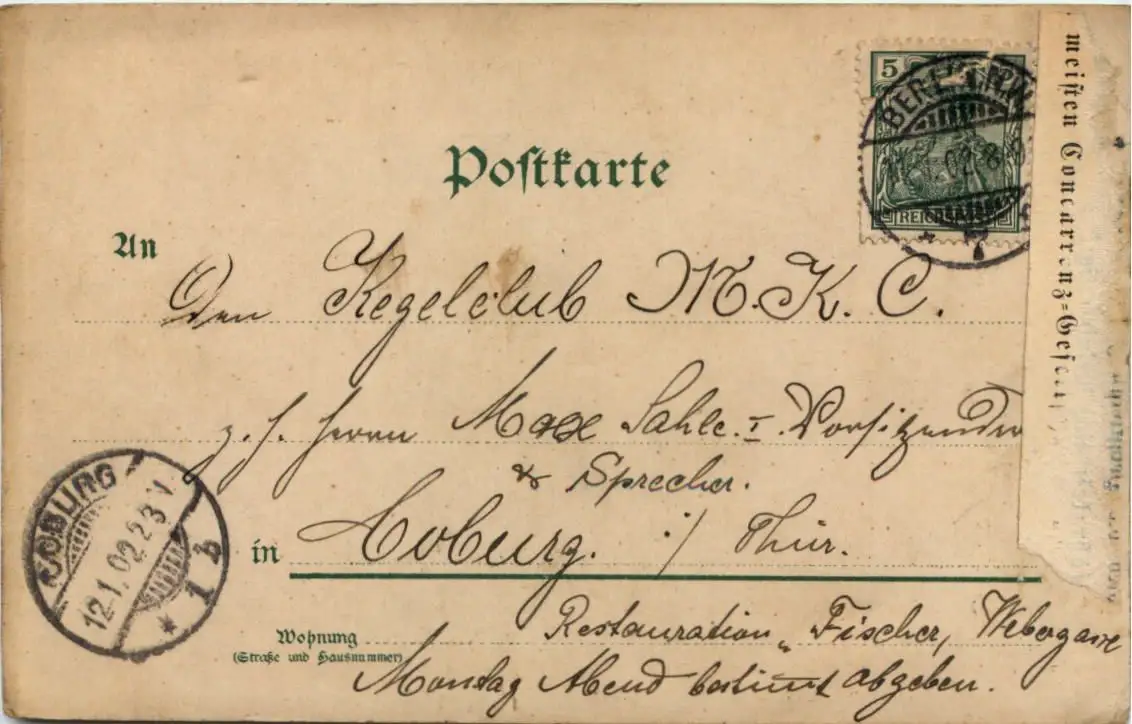 Postkarte
5
REICHSPOST
BERLIN
02 8
An
Den Kegelclub M. K. C.
z. H. Herrn Max Sahle. I. Vorsitzender
& Sprecher.
in Coburg. :/ Thür.
Wohnung
(Straße und Hausnummer)
Restauration „Fischer, Webergasse
Montag Abend bestimmt abgeben.
COBURG
12.1.02.2-3 N
* 1 b
meisten Concurrenz-Gesell